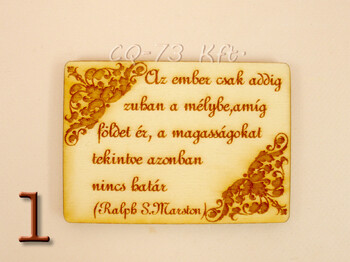 CQ-73 Kft.
Az ember csak addig
zuhan a mélybe,amíg
földet ér, a magasságokat
tekintve azonban
nincs határ
(Ralph S.Marston)
1